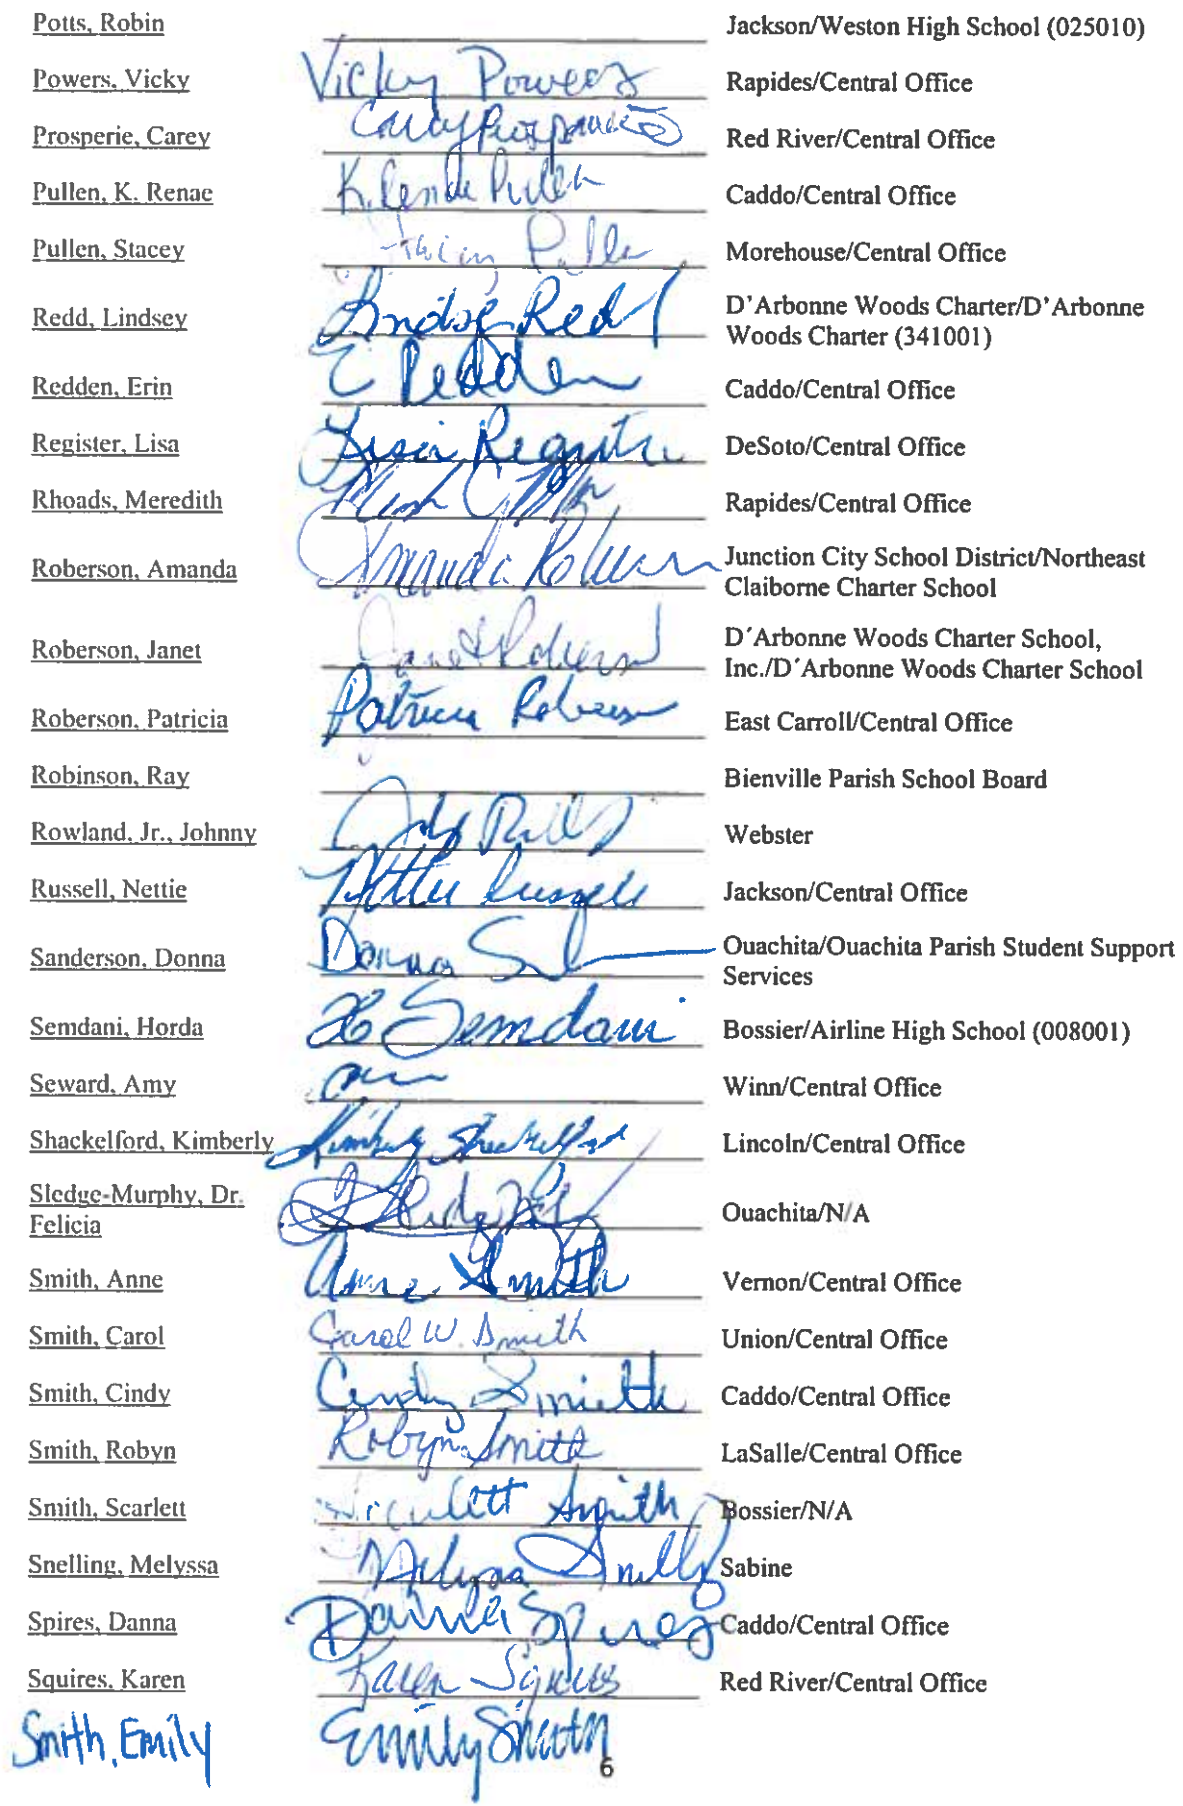 Potts, Robin Jackson/Weston High School (025010)
Powers, Vicky Vicky Powers Rapides/Central Office
Prosperie, Carey Carey Prosperie Red River/Central Office
Pullen, K. Renae K. Renae Pullen Caddo/Central Office
Pullen, Stacey Stacey Pullen Morehouse/Central Office
Redd, Lindsey Lindsey Redd D'Arbonne Woods Charter/D'Arbonne
Woods Charter (341001)
Redden, Erin E Redden Caddo/Central Office
Register, Lisa Lisa Register DeSoto/Central Office
Rhoads, Meredith Rapides/Central Office
Roberson, Amanda Amanda Roberson Junction City School District/Northeast
Claiborne Charter School
Roberson, Janet Janet Roberson D´Arbonne Woods Charter School,
Inc./D´Arbonne Woods Charter School
Roberson, Patricia Patricia Roberson East Carroll/Central Office
Robinson, Ray Bienville Parish School Board
Rowland, Jr., Johnny Webster
Russell, Nettie Nettie Russell Jackson/Central Office
Sanderson, Donna Donna Ouachita/Ouachita Parish Student Support
Services
Semdani, Horda Semdani Bossier/Airline High School (008001)
Seward, Amy Winn/Central Office
Shackelford, Kimberly Kimberly Shackelford Lincoln/Central Office
Sledge-Murphy, Dr.
Felicia Ouachita/N/A
Smith, Anne Anne Smith Vernon/Central Office
Smith, Carol Carol W. Smith Union/Central Office
Smith, Cindy Cindy Smith Caddo/Central Office
Smith, Robyn Robyn Smith LaSalle/Central Office
Smith, Scarlett Scarlett Smith Bossier/N/A
Snelling, Melyssa Melyssa Snelling Sabine
Spires, Danna Danna Spires Caddo/Central Office
Squires, Karen Karen Squires Red River/Central Office
Smith, Emily Emily Smith
6